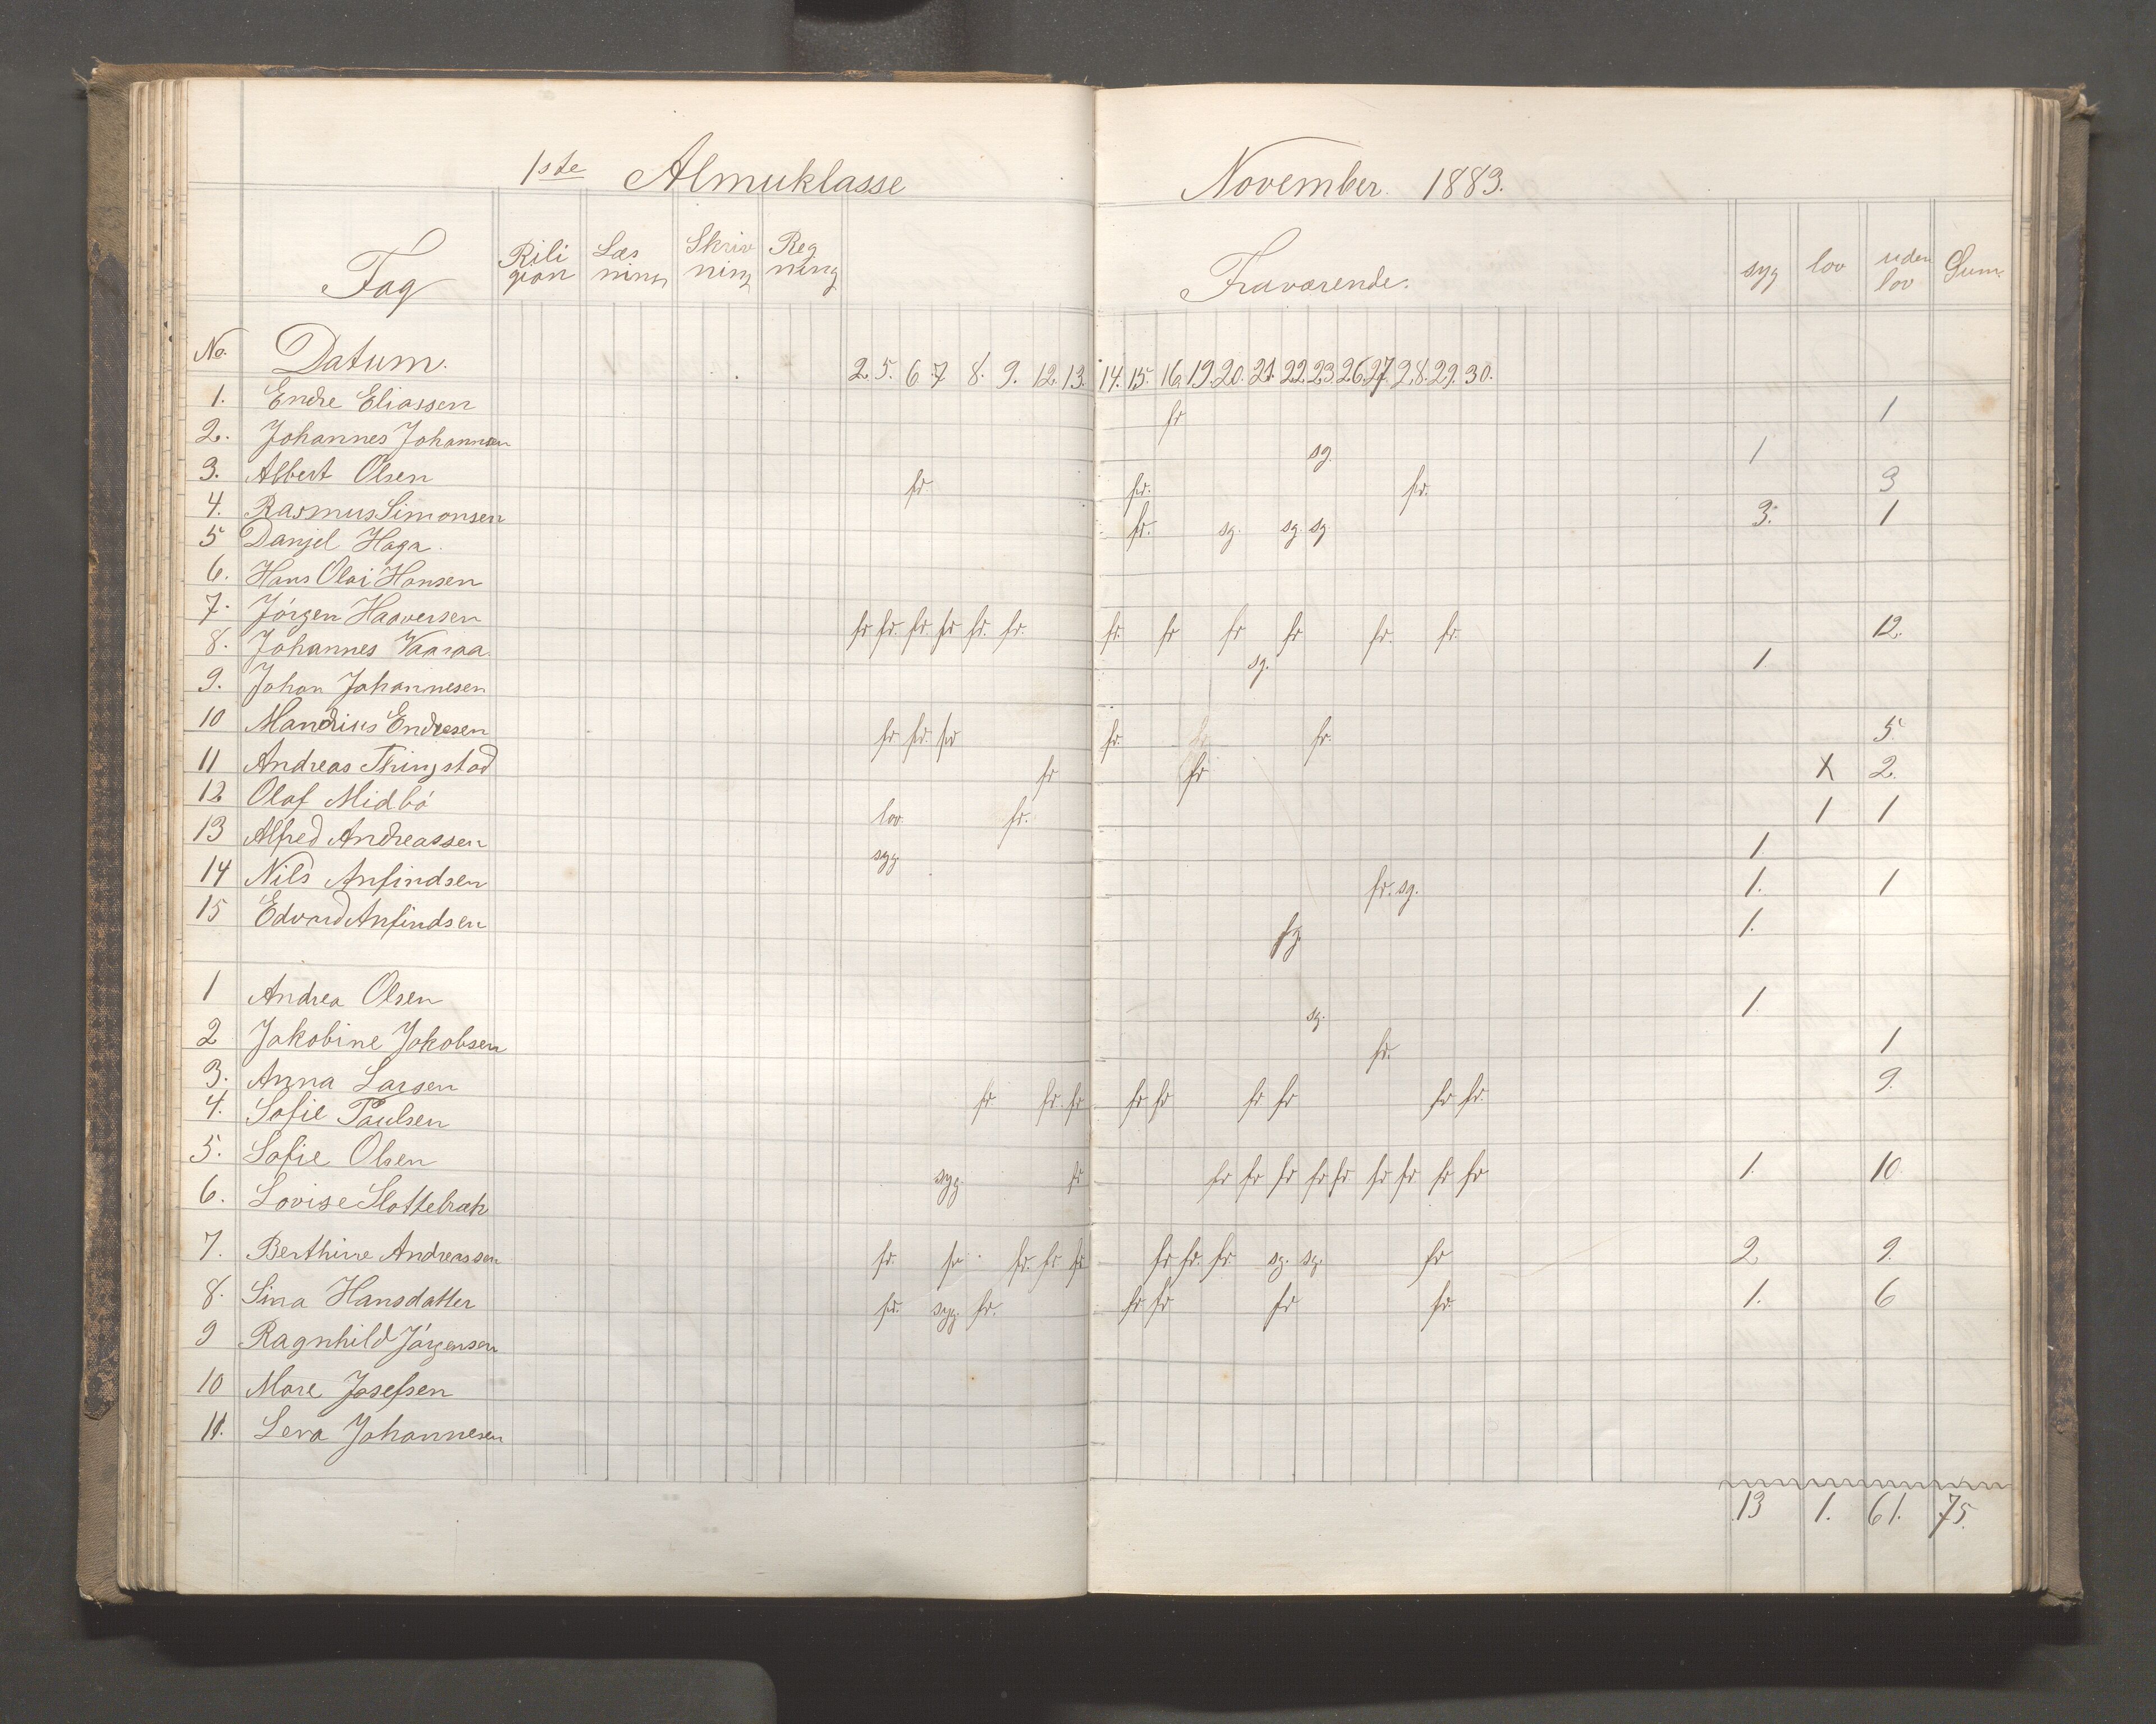 1ste Almuklasse November. 1883.
Fag Rili gion Læs ning Skriv ning Reg ning Fraværende. syg lov uden lov Sum
No. Datum. 2. 5. 6 7 8. 9. 12. 13. 14. 15. 16. 19. 20. 21. 22. 23. 26. 27. 28. 29. 30.
1. Endre Eliassen fr 1
2. Johannes Johannesen sg. 1
3. Albert Olsen fr. fr. fr. 3
4. Rasmus Simonsen fr. sg. sg. sg 3. 1
5 Danjel Haga.
6. Hans Olai Hansen
7. Jörgen Haaversen fr fr. fr. fr fr. fr. fr. fr fr fr fr. fr. 12.
8. Johannes Vaaraa sg. 1.
9. Johan Johannesen
10 Mandrius Endresen fr fr. fr fr. fr. 5.
11 Andreas Thingstad fr fr X 2.
12 Olaf Midbö lov. fr. 1 1
13 Alfred Andreassen syg. 1
14 Nils Anfindsen fr. sg. 1. 1
15 Edvard Anfindsen sg. 1.
1 Andrea Olsen sg. 1
2 Jakobine Jakobsen fr. 1
3. Anna Larsen fr fr. fr fr fr fr fr fr fr. 9.
4. Sofie Paulsen
5. Sofie Olsen syg. fr fr fr fr fr fr fr fr fr fr 1. 10.
6. Lovise Slottebræk
7. Berthine Andreassen fr. fr. fr. fr. fr fr fr. fr. sg. sg. fr 2. 9.
8. Sina Hansdatter fr. syg. fr. fr fr fr fr. 1. 6
9 Ragnhild Jörgensen
10 Mare Josefsen
11. Lena Johannesen
13 1. 61. 75.